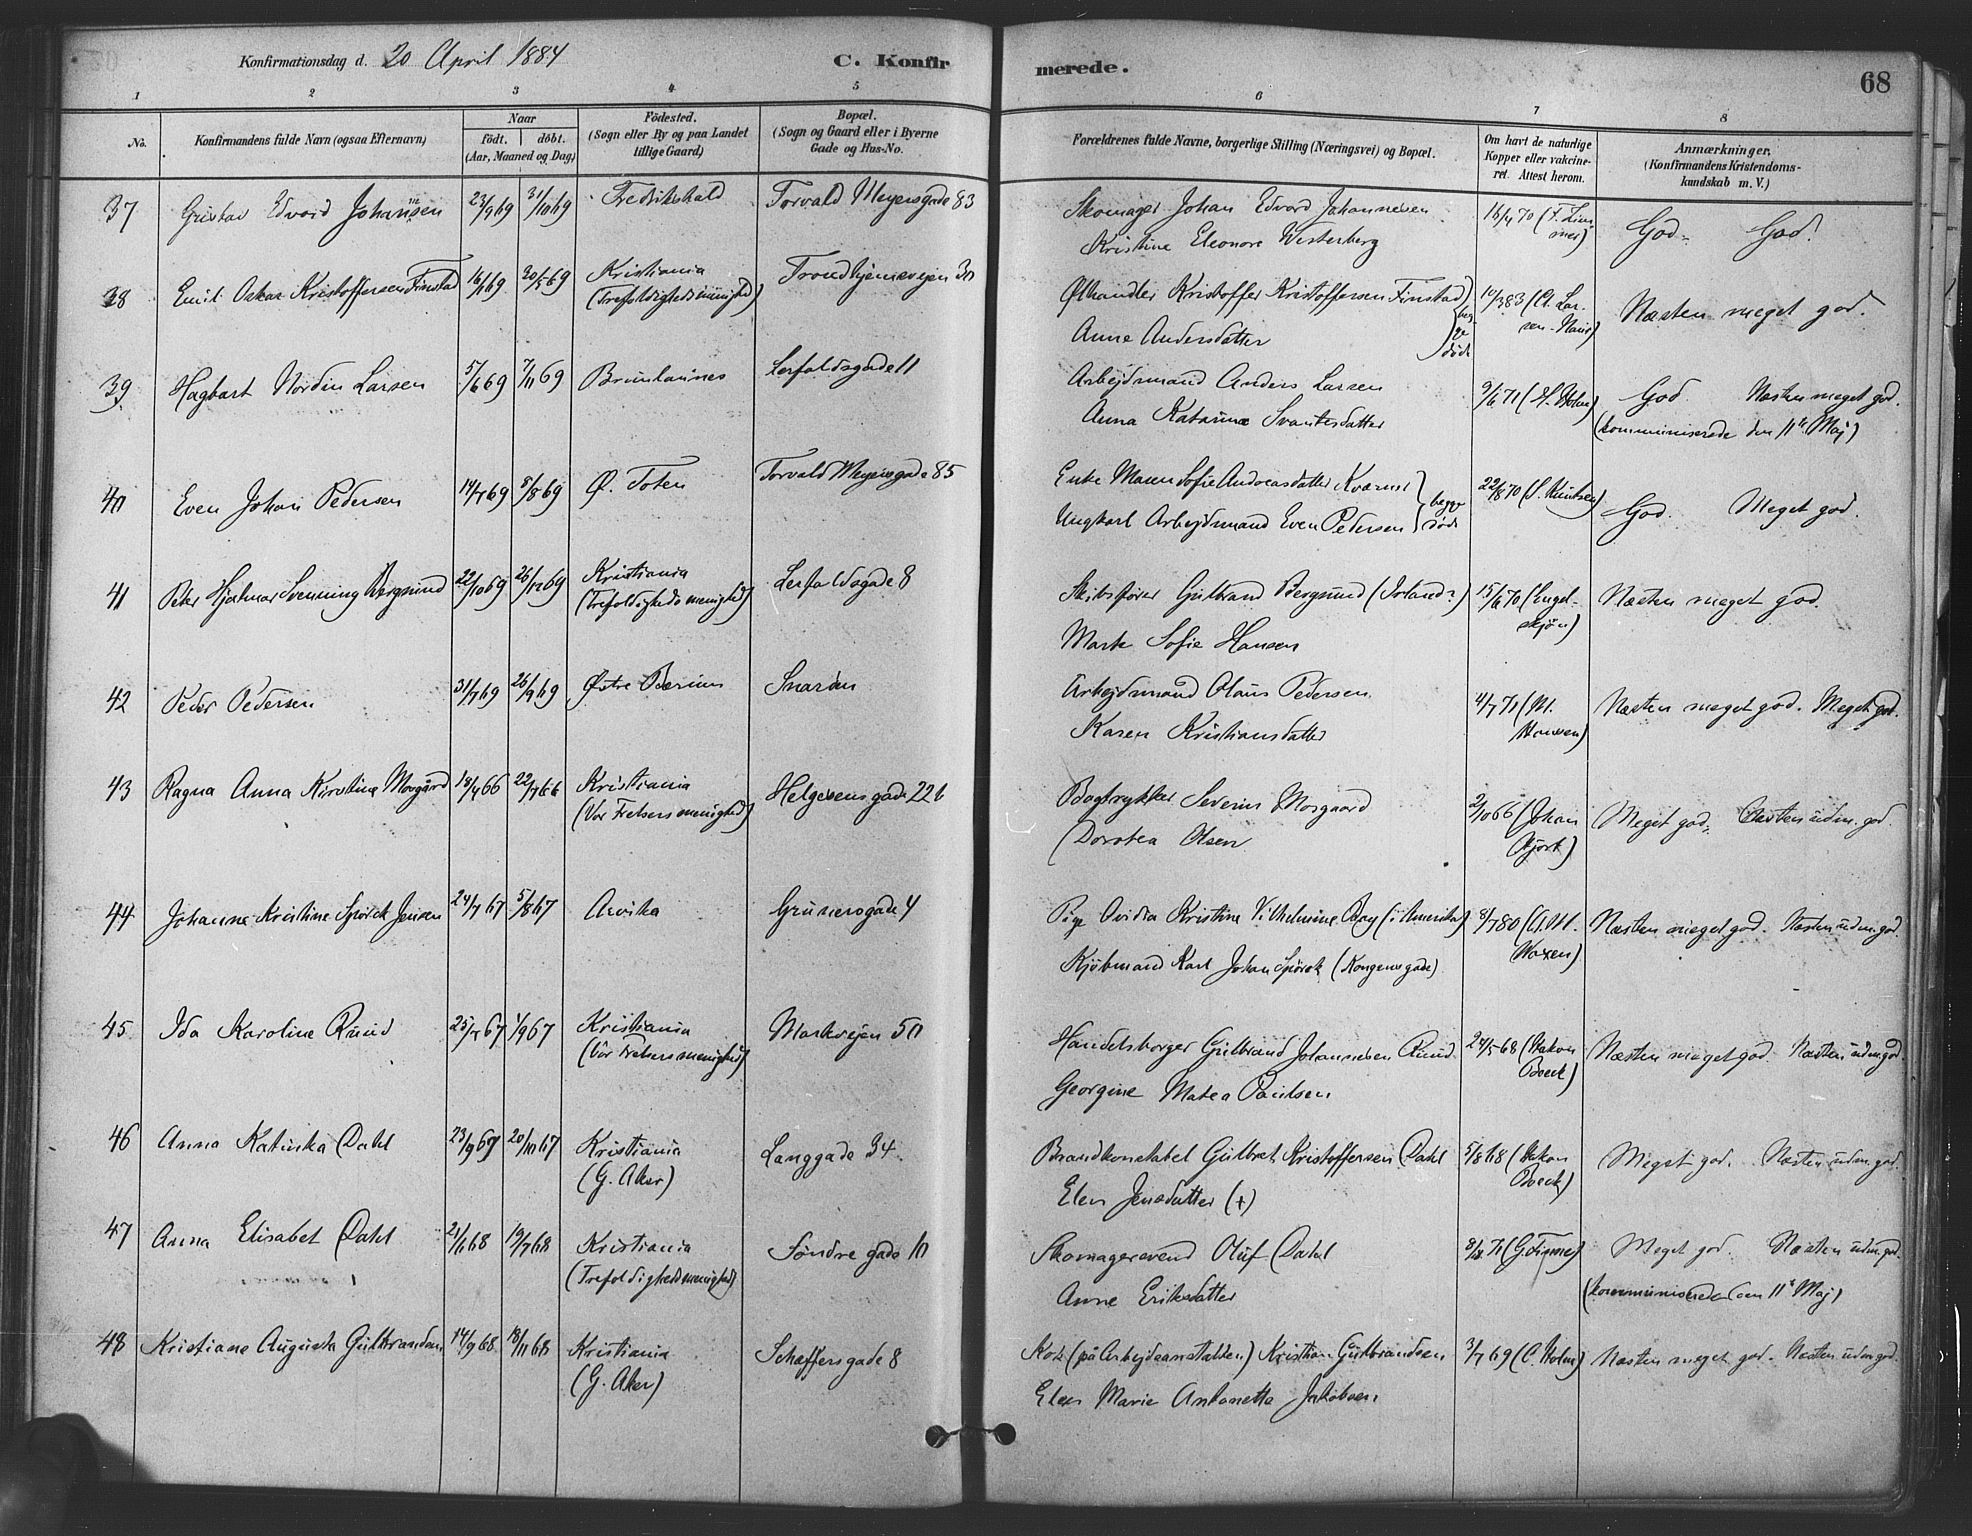 Konfirmationsdag d. 20 April 1884
C. Konfirmerede.
68
1 2 3 4 5 6 7 8
No.
Konfirmandens fulde Navn (ogsaa Efternavn)
Naar
födt. döbt.
(Aar, Maaned og Dag)
Födested.
(Sogn eller By og paa Landet
tillige Gaard)
Bopæl.
(Sogn og Gaard eller i Byerne
Gade og Hus-No.
Forældrenes fulde Navne, borgerlige Stilling (Næringsvei) og Bopæl.
Om havt de naturlige
Kopper eller vakcine-
ret. Attest herom.
Anmærkninger.
(Konfirmandens Kristendoms-
kundskab m. V.)
37 Gustav Edvard Johansen 23/9 69 31/10 69 Fredrikshald Torvald Meyersgade 83 Skomager Johan Edvard Johannesen 16/4 70
Kristine Eleonore Westerberg God. God.
38 Emil Oskar Kristoffersen Finstad 16/1 69 30/5 69 Kristiania Trondhjemsvejen 30 Ølhandler Kristoffer Kristoffersen Finstad 10/3 83 (A. Lar-
(Trefoldighedsmenighed) Anne Andersdatter } beg-ge døde Næsten meget god.
39 Hagbart Nordin Larsen 5/6 69 7/11 69 Brunlanæs Lerfaldsgade 11 Arbejdsmand Anders Larsen 9/6 71 (H. Holm) God. Næsten meget god.
Anna Katarina Svantesdatter (kommuniserede den 11te Maj)
40 Even Johan Pedersen 14/7 69 8/8 69 Ø. Toten Torvald Meyersgade 85 Enke Maren Sofie Andreasdatter Kværner 22/8 70 (S. Knutsen)
Ungkarl Arbejdsmand Even Pedersen } begge døde God. Meget god.
41 Peter Hjalmar Svenning Bergsund 22/10 69 26/12 69 Kristiania Lerfaldsgade 8 Skibsfører Gulbrand Bergsund (Irland?) 15/6 70 (Engel-
(Trefoldigheds menighed) skjön) Næsten meget god.
Marte Sofie Hansen
42 Peder Pedersen 31/7 69 26/9 69 Østre Bærum Snarøen Arbejdsmand Olaus Pedersen 4/7 71 (M.
Karen Kristiansdatter Hansen) Næsten meget god. Meget god.
43 Ragna Anna Kirstine Mosgård 18/4 66 22/7 66 Kristiania Helgesens gade 22 b Bogtrykker Severin Mosgaard 2/10 66 (Johan
(Vor Frelsers menighed) Dorotea Olsen Hjort) Meget god. Næsten udm. god.
44 Johanne Kristine Spörck Jensen 24/7 67 5/8 67 Arvika Grünersgade 4 Pige Ovidia Kristine Vilhelmine Bay (i Amerika) 8/7 80 (A. M.
Kjöbmand Karl Johan Spörck (Kongensgade) Waxen) Næsten meget god. Næsten udm. god.
45 Ida Karoline Ruud 25/7 67 1/9 67 Kristiania Markvejen 50 Handelsborger Gulbrand Johannesen Ruud 24/5 68 (Hakon
(Vor Frelsers menighed) Georgine Matea Paulsen Boeck) Næsten meget god. Næsten udm. god.
46 Anna Katinka Dahl 23/9 67 20/10 67 Kristiania Langgade 34. Brandkonstabel Gulbrat Kristoffersen Dahl 5/8 68 (Hakon
(G. Aker) Elen Jensdatter (+) Boeck) Meget god. Næsten udm. god.
47 Anna Elisabet Dahl 21/1 68 19/7 68 Kristiania Söndre gade 10 Skomagersvend Oluf Dahl Meget god. Næsten udm. god.
(Trefoldighedsmenighed) Anne Eriksdatter (kommuniserede den 11te Maj)
48 Kristiane Augusta Gulbrandsen 14/9 68 18/11 68 Kristiania Schæffersgade 8 Kok (på Arbejdsanstalten) Kristian Gulbrandsen 3/7 69 (C. Holm) Næsten meget god. Næsten udm. god.
(G. Aker) Elen Marie Antonetta Jakobsen